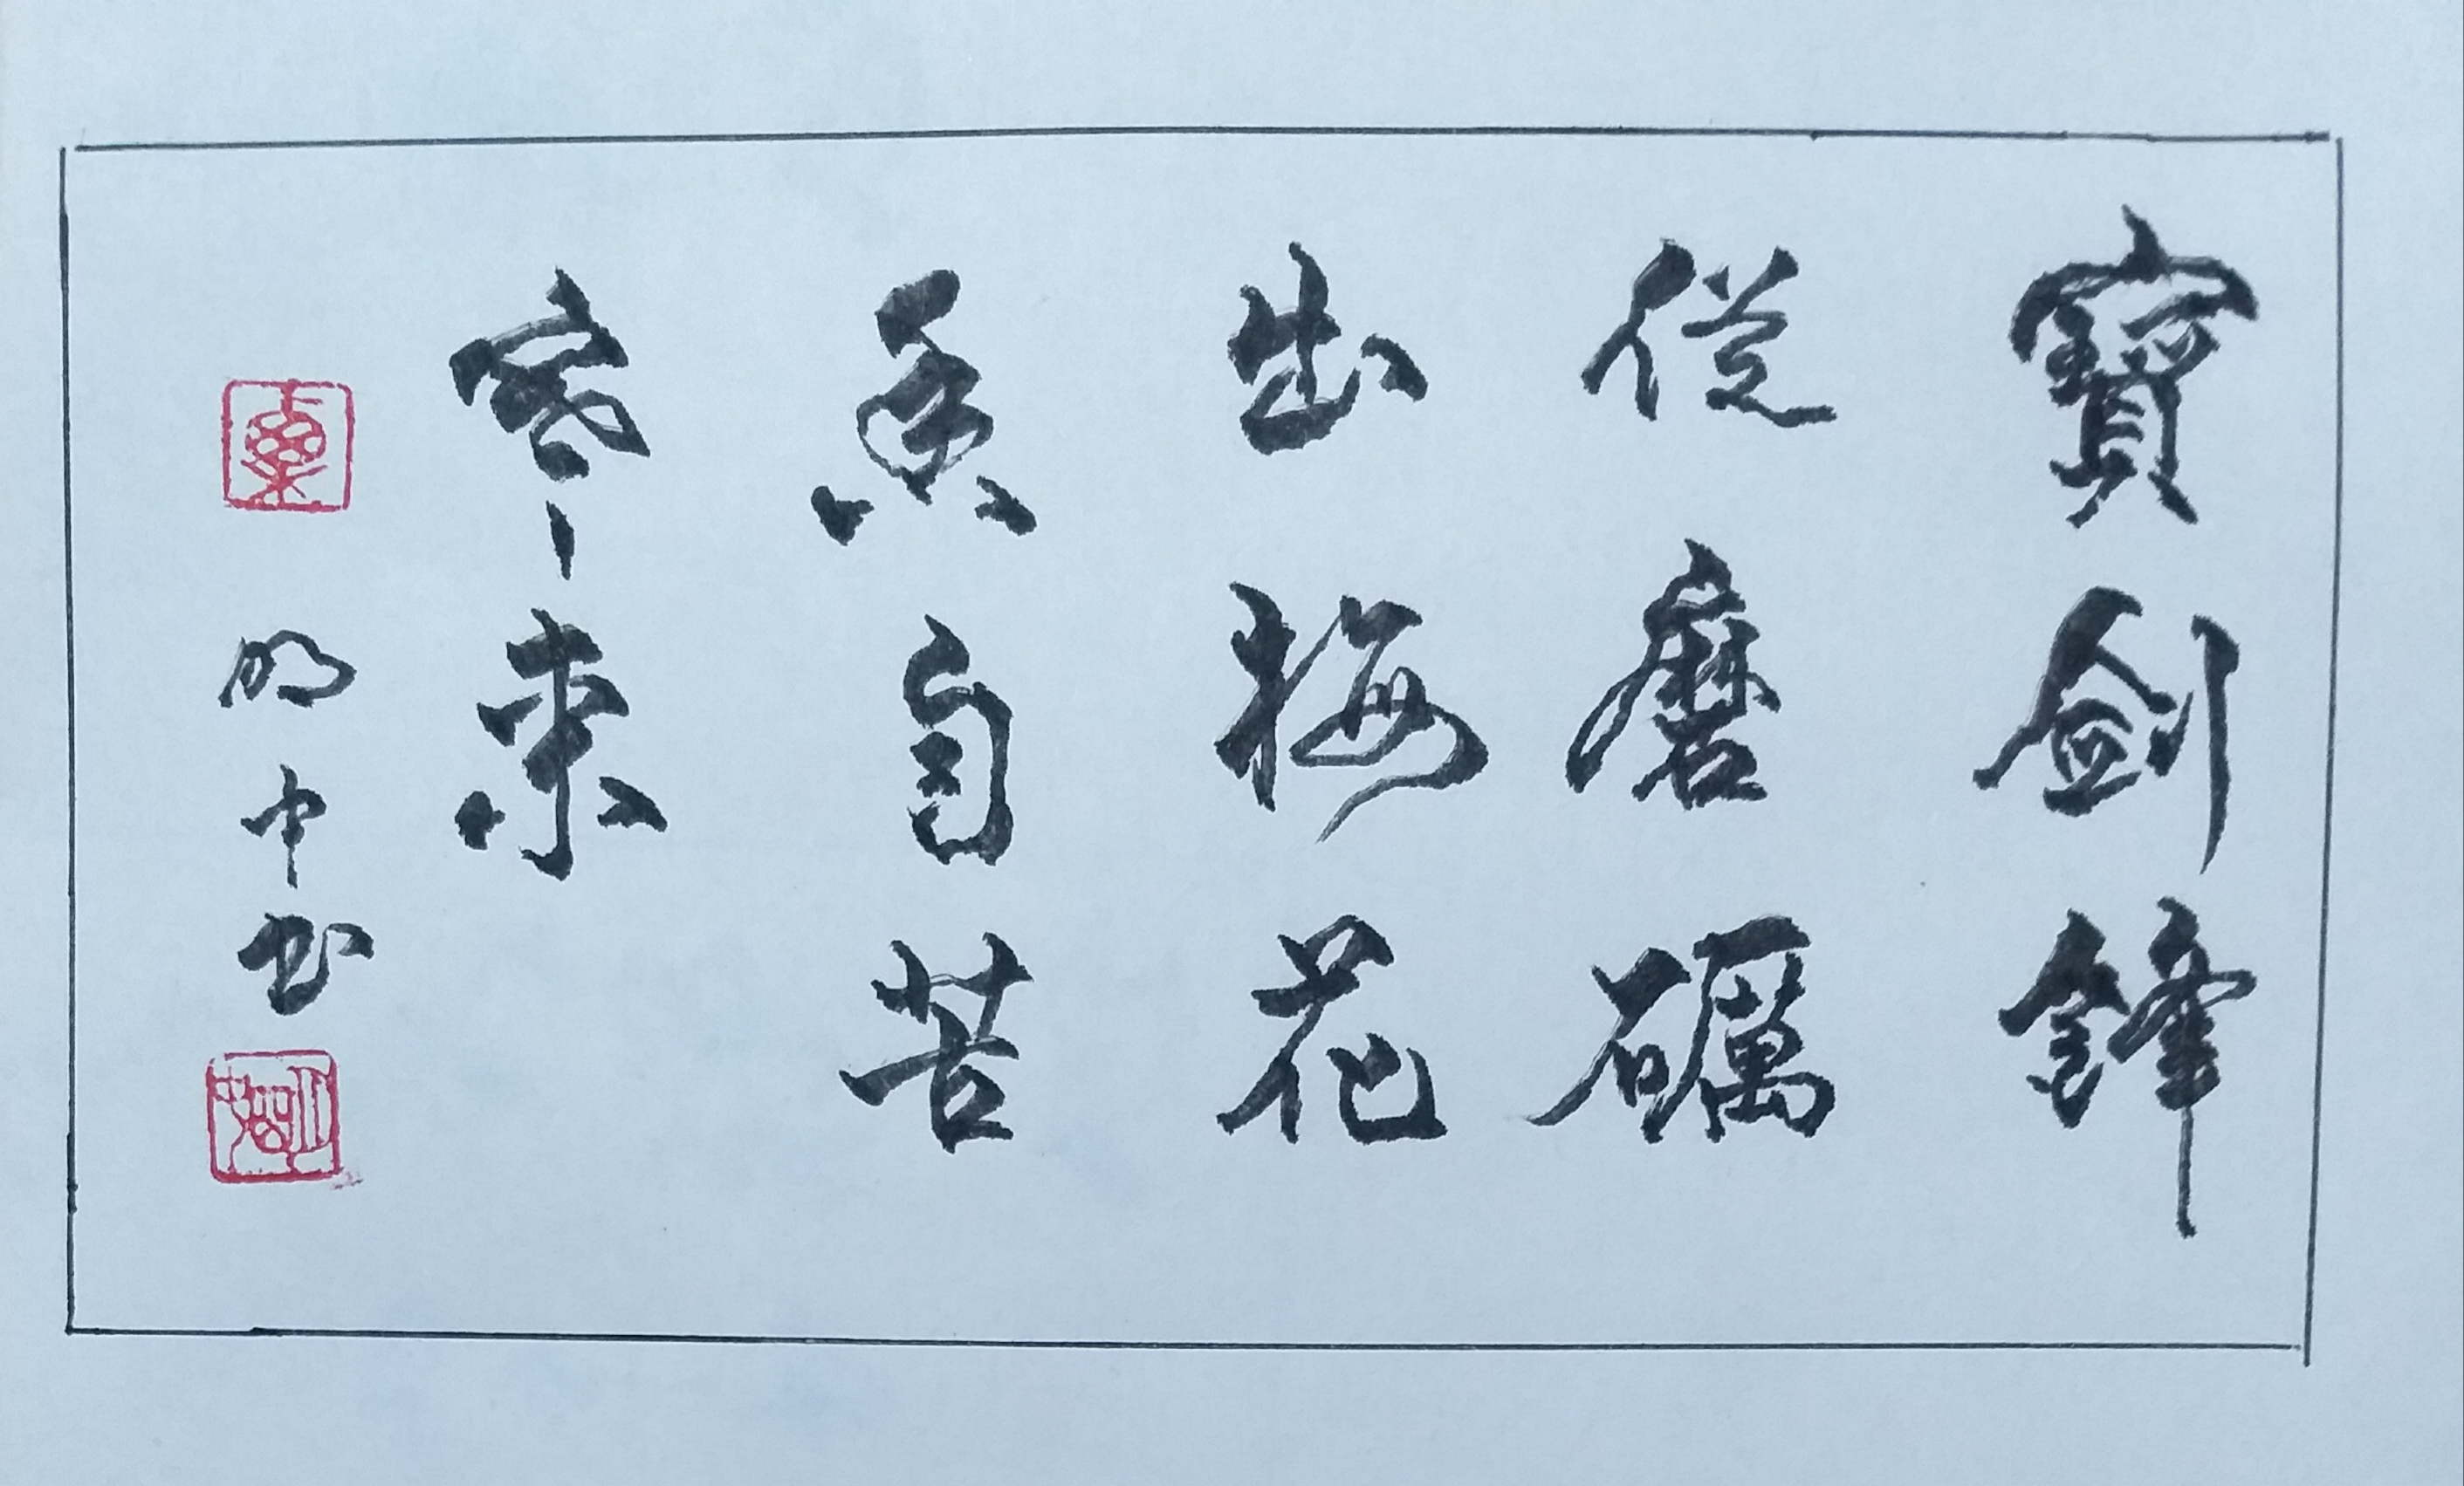 寶劍鋒
從磨礪
出梅花
香自苦
寒來
明中书